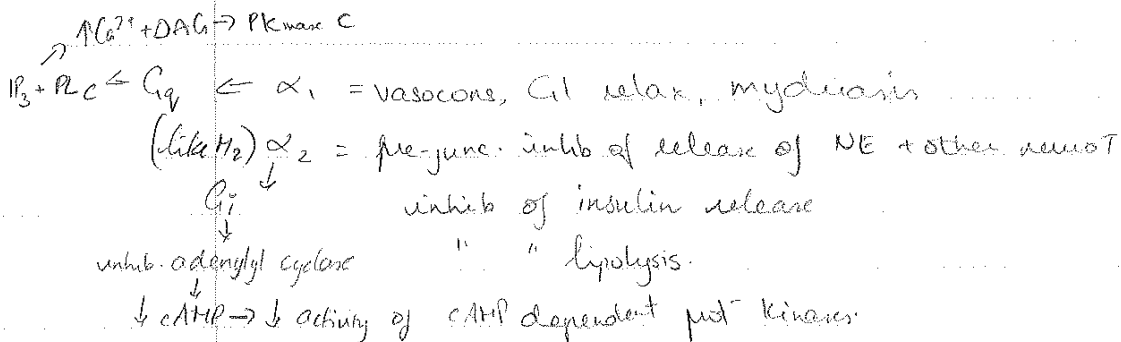 ↑Ca²⁺ + DAG → PKinase C
IP₃ + PLC ← Gq ← α₁ = vasocons, GI relax, mydriasis
(like M₂) α₂ = pre-junc. inhib of release of NE + other neuroT
↓
Gi inhib of insulin release
↓
inhib. adenylyl cyclase " " lipolysis.
↓
↓ cAMP → ↓ activity of cAMP dependent prot kinases.